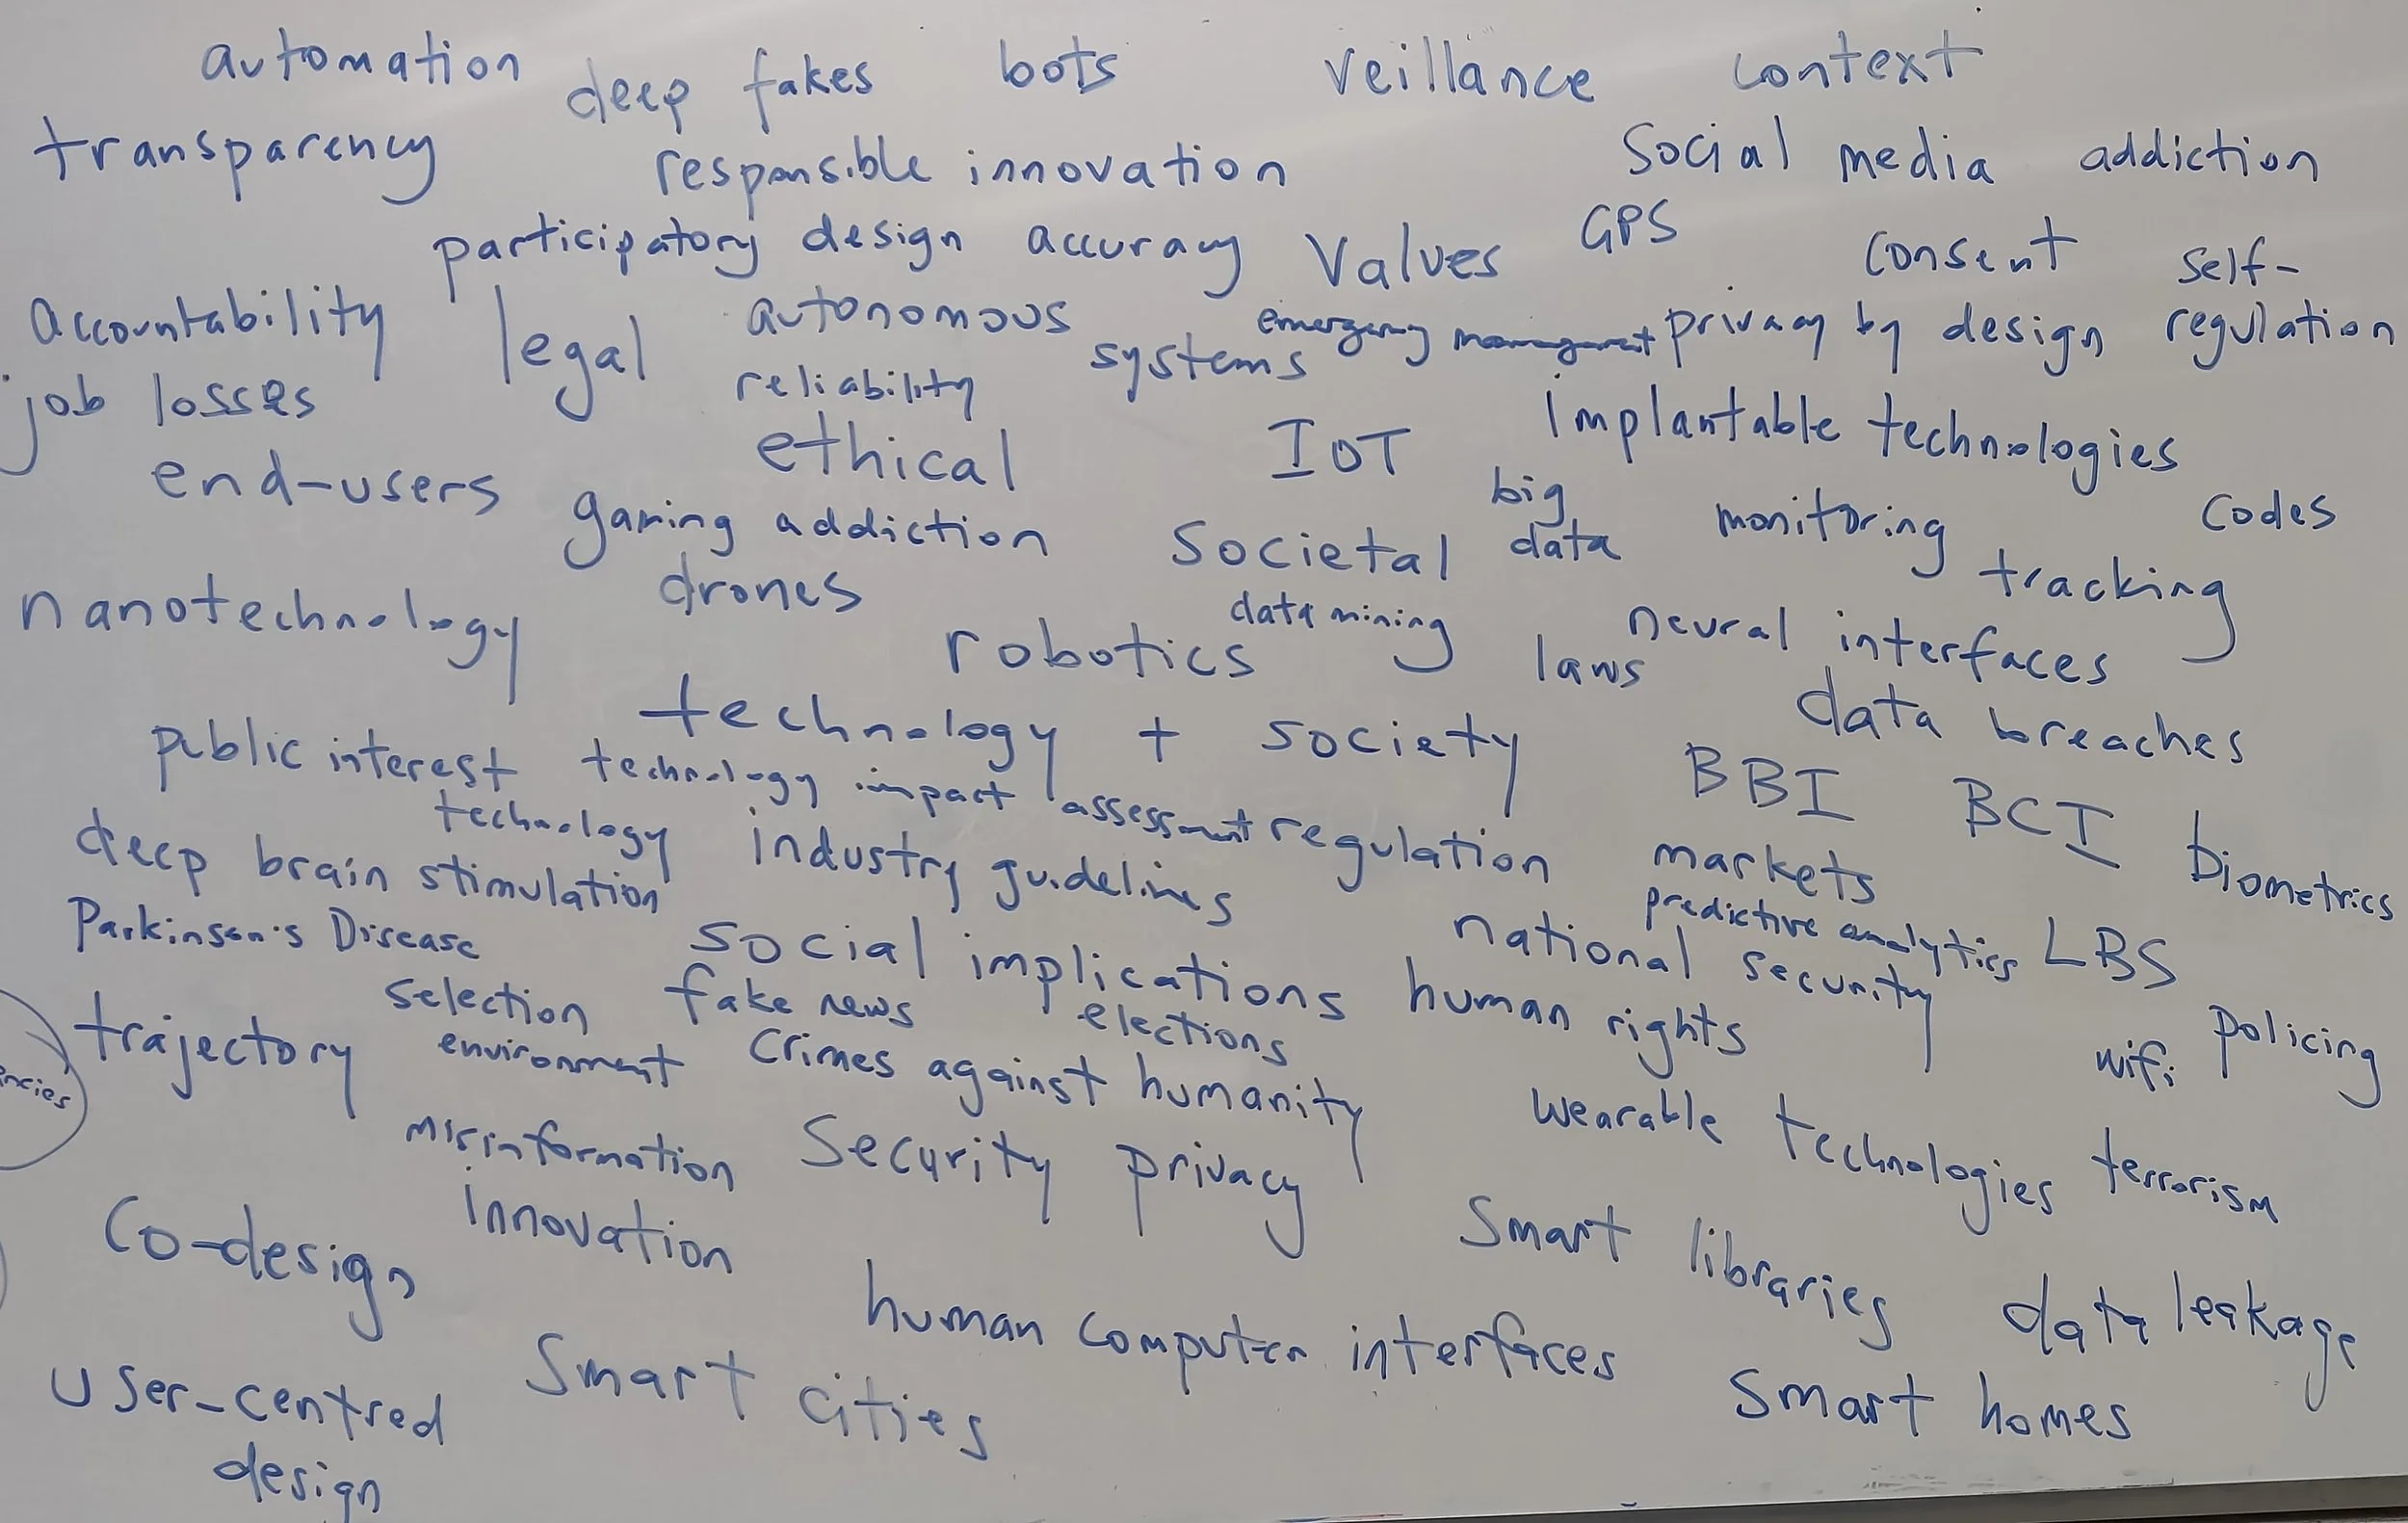 automation deep fakes bots veillance context
transparency responsible innovation social media addiction
participatory design accuracy values GPS consent self-
accountability legal autonomous systems emergency management privacy by design regulation
job losses reliability
ethical IoT implantable technologies
end-users gaming addiction societal big data monitoring codes
nanotechnology drones data mining tracking
robotics laws neural interfaces
technology + society data breaches
public interest technology technology impact assessment regulation BBI BCI biometrics
deep brain stimulation industry guidelines markets
Parkinson's Disease social implications national security predictive analytics LBS
selection environment fake news elections human rights policing
trajectory crimes against humanity wifi
misinformation security privacy wearable technologies terrorism
co-design innovation smart libraries data leakage
human computer interfaces
user-centred smart cities smart homes
design